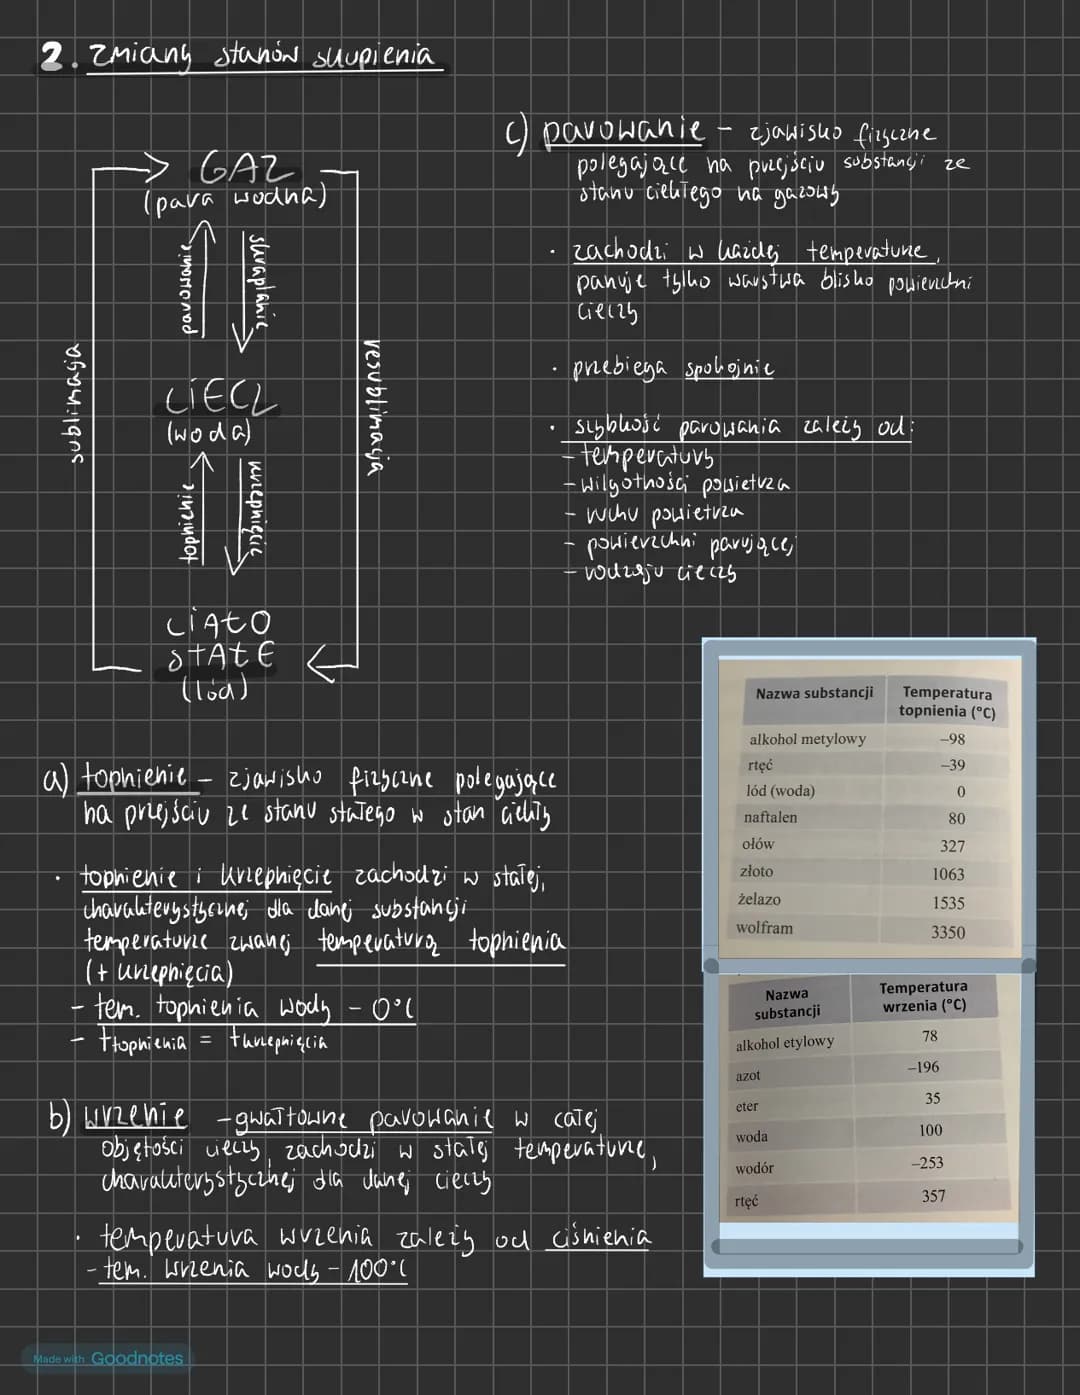 2. zmiany stanów skupienia
GAZ
(para wodna)
parowanie
skraplanie
sublimacja
resublimacja
CIECZ
(woda)
topnienie
krzepnięcie
CIAŁO
STAŁE
(lód)
a) topnienie – zjawisko fizyczne polegające
na przejściu ze stanu stałego w stan ciekły
· topnienie i krzepnięcie zachodzi w stałej,
charakterystycznej dla danej substancji
temperaturze zwanej temperaturą topnienia
(+ krzepnięcia)
- tem. topnienia wody – 0°C
- t topnienia = t krzepnięcia
b) wrzenie - gwałtowne parowanie w całej
objętości cieczy, zachodzi w stałej temperaturze,
charakterystycznej dla danej cieczy
· temperatura wrzenia zależy od ciśnienia
- tem. wrzenia wody – 100°C
c) parowanie – zjawisko fizyczne
polegające na przejściu substancji ze
stanu ciekłego na gazowy
· zachodzi w każdej temperaturze,
paruje tylko warstwa blisko powierzchni
cieczy
· przebiega spokojnie
· szybkość parowania zależy od:
- temperatury
- wilgotności powietrza
- ruchu powietrza
- powierzchni parującej
- rodzaju cieczy
Nazwa substancji Temperatura
topnienia (°C)
alkohol metylowy –98
rtęć –39
lód (woda) 0
naftalen 80
ołów 327
złoto 1063
żelazo 1535
wolfram 3350
Nazwa
substancji
Temperatura
wrzenia (°C)
alkohol etylowy 78
azot –196
eter 35
woda 100
wodór –253
rtęć 357
Made with Goodnotes